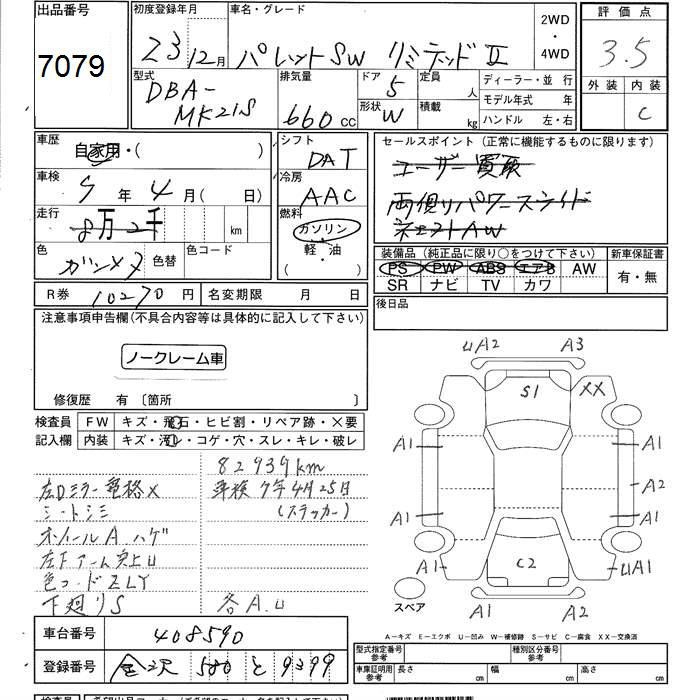 出品番号
7079
初度登録年月
23 12月
車名・グレード
パレットSW リミテッドⅡ
2WD
・
4WD
評価点
3.5
外装 内装
C
型式
DBA-
MK21S
排気量
660 cc
ドア
5
形状
W
定員
人
積載
kg
ディーラー・並行
モデル年式 年
ハンドル 左・右
車歴
自家用・( )
車検
7年4月( 日)
走行
8万2千 km
色
ガンメタ
色替
色コード
シフト
DAT
冷房
AAC
燃料
ガソリン
軽・油
( )
セールスポイント (正常に機能するものに限ります)
ユーザー買取
両側リパワースライド
ネエストAW
装備品 (純正品に限り○をつけて下さい)
PS PW ABS エアB AW
SR ナビ TV カワ
新車保証書
有・無
R券 10270円
名変期限 月 日
後日品
注意事項申告欄(不具合内容等は具体的に記入して下さい)
ノークレーム車
修復歴 有 〔箇所 〕
検査員
記入欄
FW キズ・飛石・ヒビ割・リペア跡・×要
内装 キズ・汚レ・コゲ・穴・スレ・キレ・破レ
82939km
左Dミラー電格×
車検 7年4月25日
シートシミ
(ステッカー)
ホイールA ハゲ
左Fアーム突上U
色コードZLY
下廻りS
各A.U
UA2 A3
S1 XX
A1 A1
A2
A1 A1
C2
A1 UA1
A1 A2
スペア
A-キズ E-エクボ U-凹み W-補修跡 S-サビ C-腐食 XX-交換済
車台番号
408590
登録番号
金沢 580 と 9399
型式指定番号
参考
種別区分番号
参考
車庫証明用
参考
長さ cm
幅 cm
高さ cm